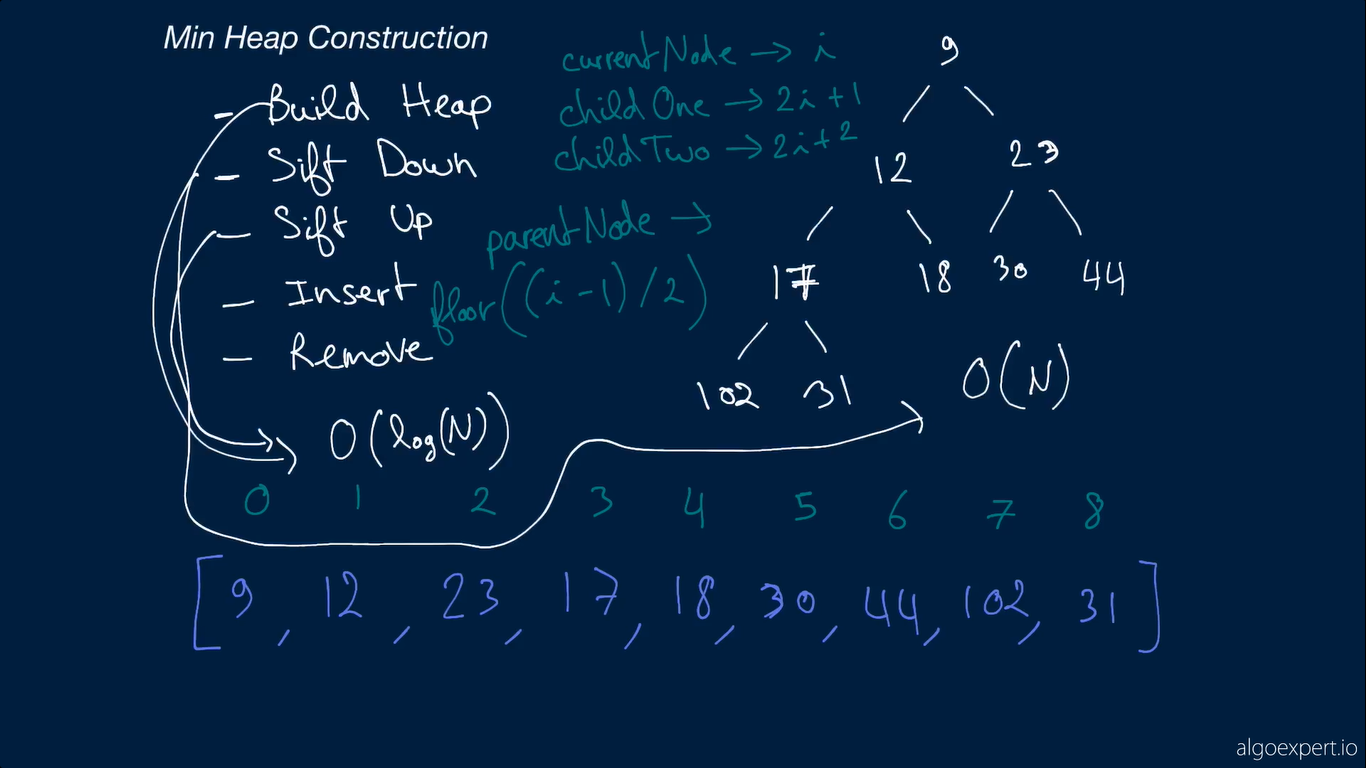 Min Heap Construction
- Build Heap
- Sift Down
- Sift Up
- Insert
- Remove
O(log(N))
currentNode → i
childOne → 2i+1
childTwo → 2i+2
parentNode →
floor((i-1)/2)
9
12 23
17 18 30 44
102 31
O(N)
0 1 2 3 4 5 6 7 8
[9, 12, 23, 17, 18, 30, 44, 102, 31]
algoexpert.io